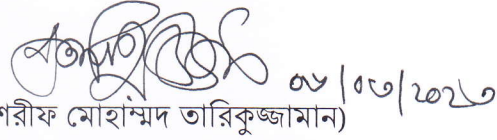 ০৮/০৩/২০২৩
শরীফ মোহাম্মদ তারিকুজ্জামান)